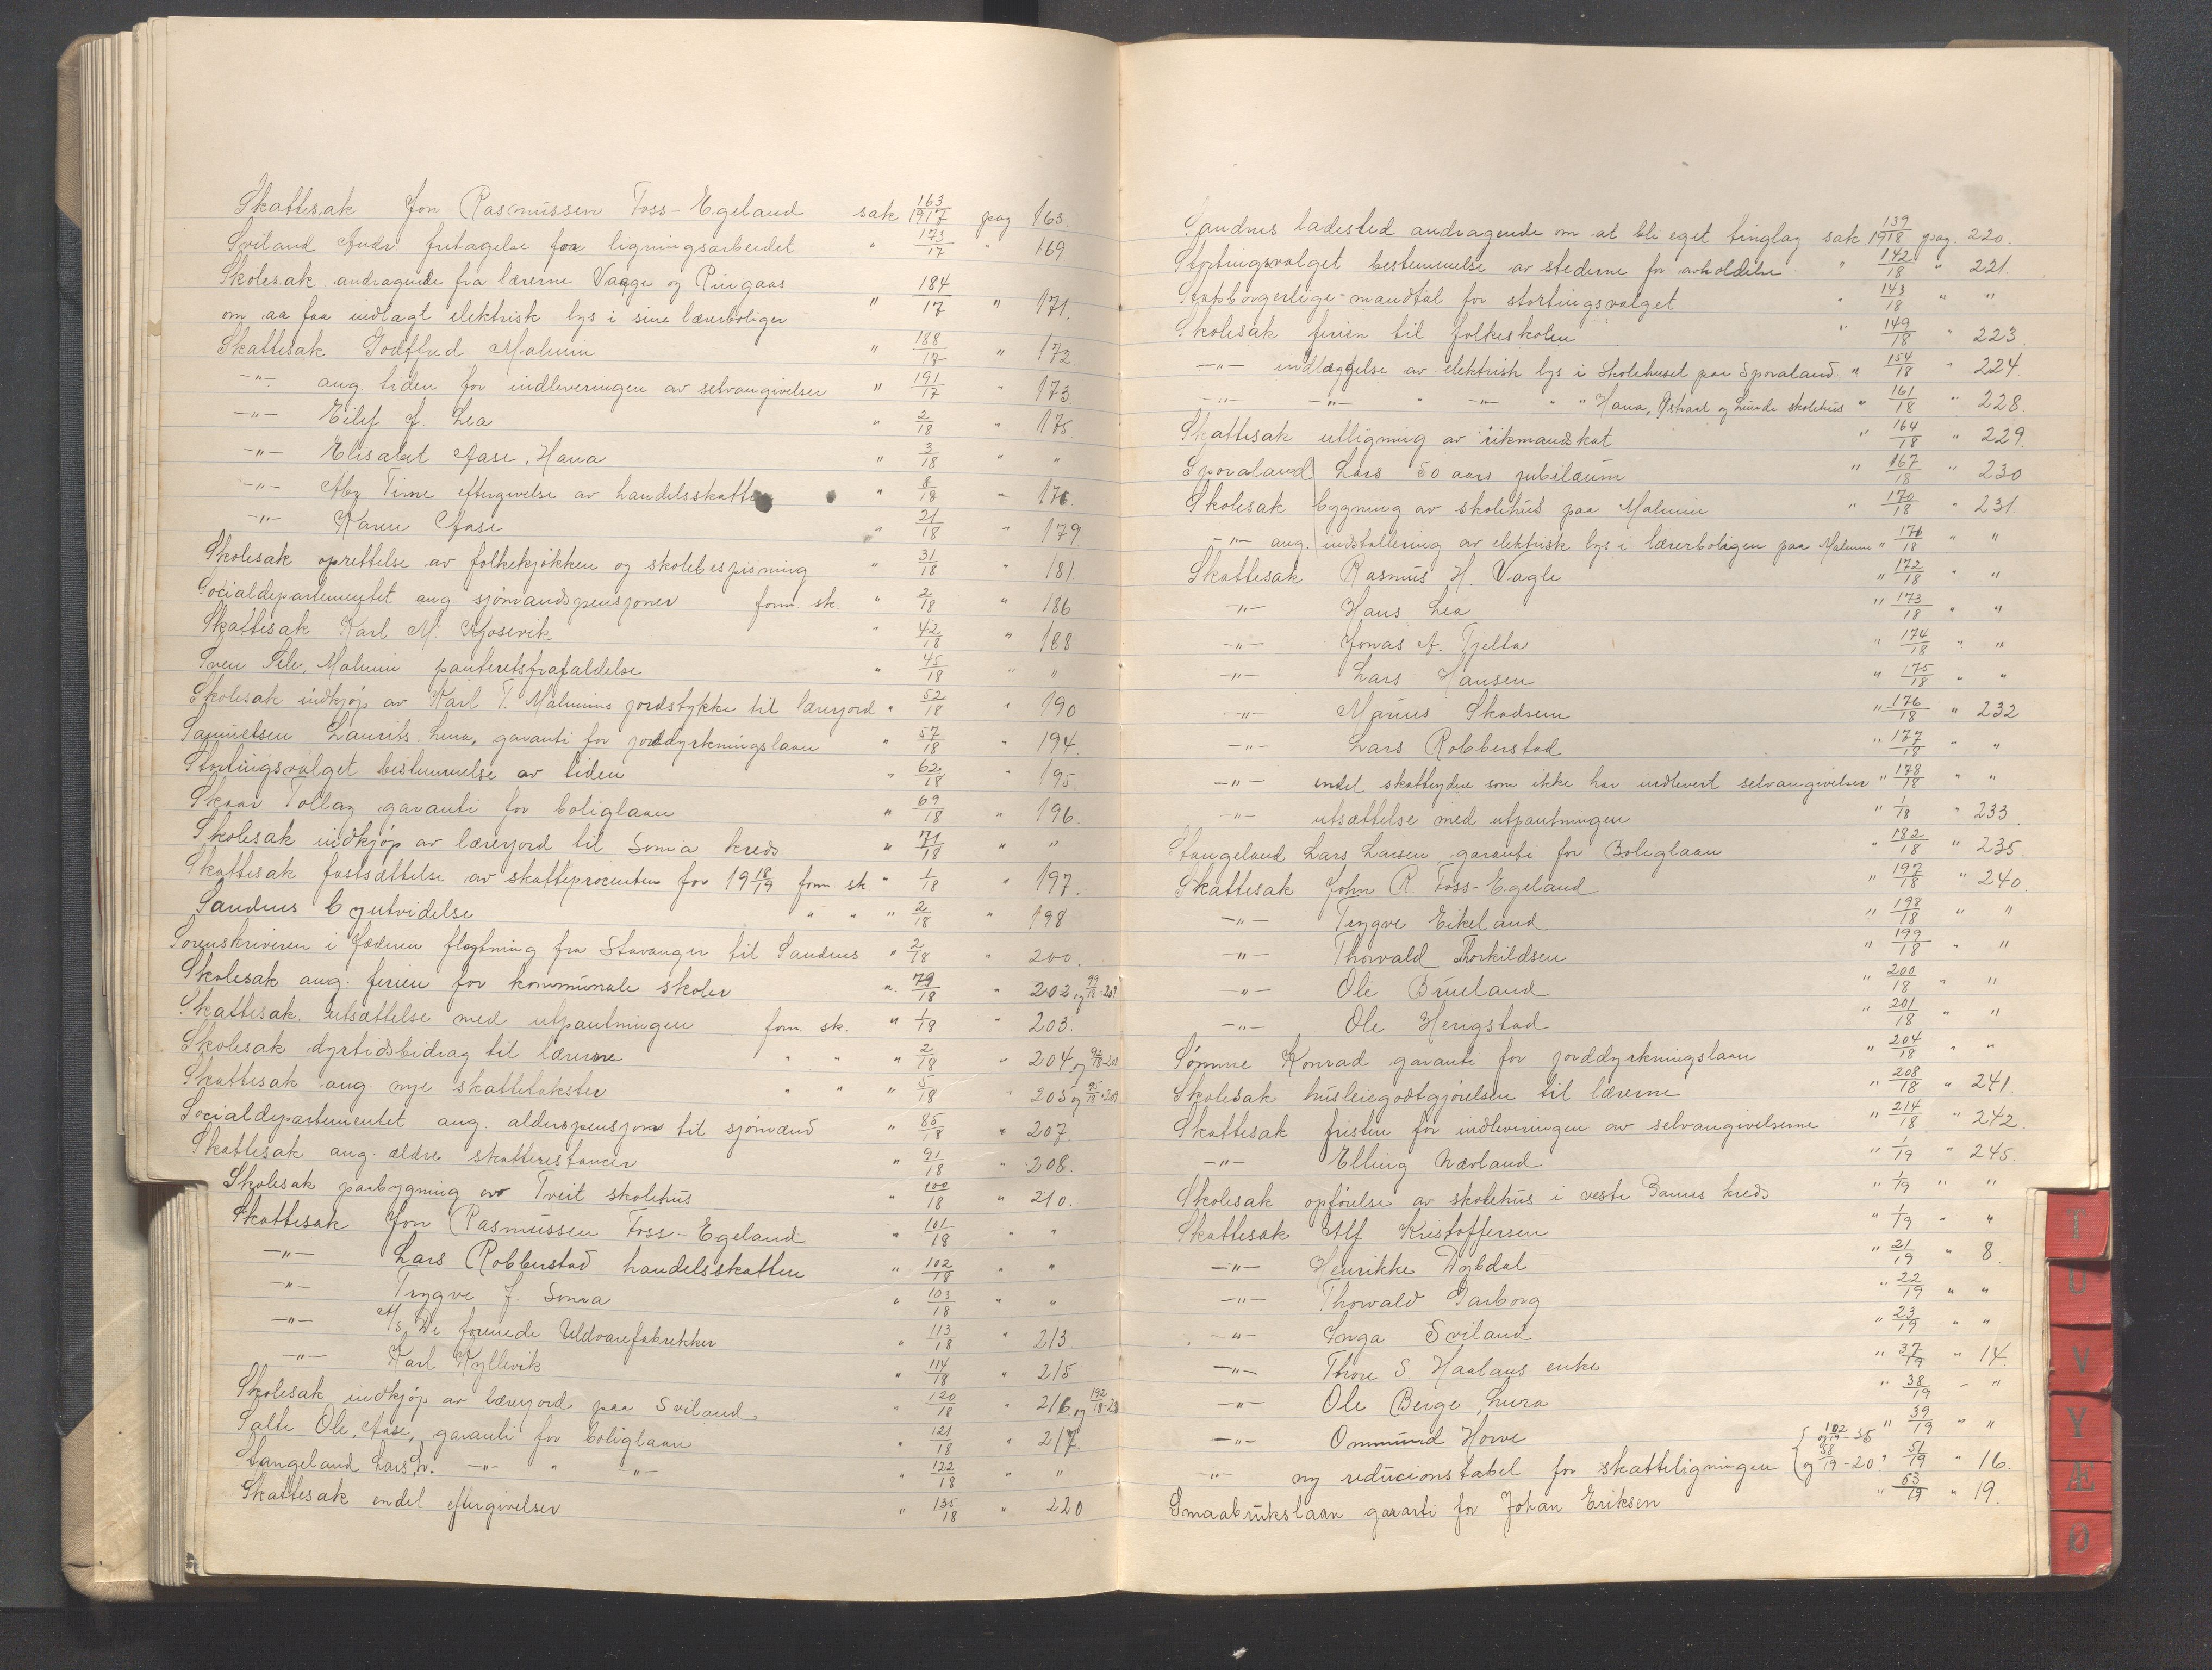 Skattesak Jon Rasmussen Foss-Egeland sak 163/1917 pag 163.
Sviland Andr fritagelse for ligningsarbeidet " 173/17 " 169.
Skolesak andragende fra lærerne Vaage og Ringaas
om aa faa indlagt elektrisk lys i sine lærerboliger " 184/17 " 171.
Skattesak Godtfred Malmin " 188/17 " 172
-"- ang. tiden for indleveringen av selvangivelser " 191/17 " 173.
-"- Eilef J. Lea " 2/18 " 175
-"- Elisabet Aase, Hana " 3/18 " "
-"- Time eftergivelse av handelsskatten " 8/18 " 176
-"- Karen Aase " 21/18 " 179
Skolesak oprettelse av folkekjøkken og skolebespisning " 31/18 " 181
Socialdepartementet ang. sjømandspensjoner form. sk. " 2/18 " 186
Skattesak Karl M. " 42/18 " 188
Sven Sele, Malmin panteretsfrafaldelse " 45/18 " "
Skolesak indkjøp av Karl T. Malmins jordstykke til lærerjord " 52/18 " 190
Samuelsen Laurits. Lura, garanti for jorddyrkningslaan " 57/18 " 194.
Stortingsvalget bestemmelse av tiden " 62/18 " 195.
Skaar Tollag garanti for boliglaan " 69/18 " 196.
Skolesak indkjøp av lærerjord til Soma kreds " 71/18 " "
Skattesak fastsættelse av skatteprocenten for 19 18/19 form. sk. " 1/18 " 197.
Sandnes Byutvidelse " " " 2/18 " 198
Sorenskriveren i Jæderen flytning fra Stavanger til Sandnes " 2/18 " 200.
Skolesak ang. ferien for kommunale skoler " 79/18 " 202 og 99/18-209
Skattesak. utsættelse med utpantningen form. sk. " 1/18 " 203.
Skolesak dyrtidsbidrag til lærerne " " " 2/18 " 204 og
Skattesak ang. nye skattetakster " " " 5/18 " 205 og 95/18-209
Socialdepartementet ang. alderspensjon til sjømænd " 85/18 " 207.
Skattesak ang. ældre skatterestancer " 91/18 " 208.
Skolesak paabygning av Tveit skolehus " 100/18 " 210.
Skattesak Jon Rasmussen Foss-Egeland " 101/18 " "
-"- Lars Robberstad handelsskatten " 102/18 " "
-"- Trygve J. Soma " 103/18 " "
-"- A/s De forenede Uldvarefabrikker " 113/18 " 213.
-"- Karl Kyllevik " 114/18 " 215
Skolesak indkjøp av lærerjord paa Sviland. " 120/18 " 216 og 192/18
Salte Ole, Aase, garanti for boliglaan " 121/18 " 217.
Stangeland Lars -"- " -"- " 122/18 " "
Skattesak endel eftergivelser " 135/18 " 220
Sandnes ladested andragende om at bli eget tinglag sak 139/1918 pag. 220.
Stortingsvalget bestemmelse av stederne for avholdelse " 142/18 " 221.
Statsborgerlige mandtal for stortingsvalget " 143/18 " "
Skolesak ferien til folkeskolen " 149/18 " 223.
-"- indlæggelse av elektrisk lys i Skolehuset paa Sporaland " 154/18 " 224
-"- -"- " -"- " " Hana, Østraat og Lunde skolehus " 161/18 " 228.
Skattesak utligning av rikmandskat " 164/18 " 229.
Sporaland Lars 50 aars jubilæum " 167/18 " 230
Skolesak bygning av skolehus paa Malmin " 170/18 " 231.
-"- ang. indstallering av elektrisk lys i lærerboligen paa Malmin " 171/18 " "
Skattesak Rasmus H. Vagle " 172/18 " "
-"- Hans Lea " 173/18 " "
-"- Jonas A. Tjelta " 174/18 " "
-"- Lars Hansen " 175/18 " "
-"- Marius Skadsem " 176/18 " 232
-"- Lars Robberstad " 177/18 " "
-"- endel skatteydere som ikke har indlevert selvangivelser " 178/18 " "
-"- utsættelse med utpantningen " 1/18 " 233.
Stangeland Lars Larsen, garanti for Boliglaan " 182/18 " 235.
Skattesak John R. Foss-Egeland " 197/18 " 240.
-"- Trygve Eikeland " 198/18 " "
-"- Thorvald Thorkildsen " 199/18 " "
-"- Ole Brueland " 200/18 " "
-"- Ole Herigstad " 201/18 " "
Sømme Konrad garanti for jorddyrkningslaan " 204/18 " "
Skolesak husleiegodtgjørelsen til lærerne " 208/18 " 241.
Skattesak fristen for indleveringen av selvangivelserne " 214/18 " 242.
-"- Elling Nærland " 1/19 " 245.
Skolesak opførelse av skolehus i vestr Sannes kreds " 1/19 " "
Skattesak Alf Kristoffersen " 1/19 " "
-"- Henrikke Dybdal " 21/19 " 8.
-"- Thorvald Garborg " 22/19 " "
-"- Inga Sviland " 23/19 " "
-"- Thore S. Haalans enke " 37/19 " 14.
-"- Ole Berge, Lura " 38/19 " "
-"- Ommund Hove " 39/19 " "
-"- ny reducionstabel for skatteligningen og 102/19-35 og 58/19-20 " 51/19 " 16.
Smaabrukslaan garanti for Johan Eriksen " 53/19 " 19.
T
U
V
Y
Æ
Ø